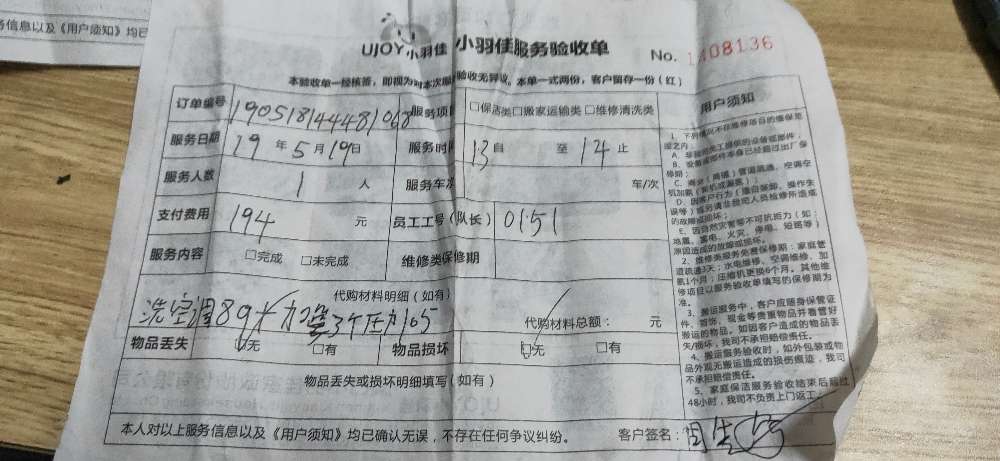 务信息以及《用户须知》均已
UJOY小羽佳 小羽佳服务验收单 No. 1408136
本验收单一经核签，即视为对本次服务验收无异议。本单一式两份，客户留存一份（红）
订单编号 190518144481068 服务项目 □保洁类□搬家运输类 □维修清洗类
服务日期 19年5月19日 服务时间 13自 至 14止
服务人数 1 人 服务车次 车/次
支付费用 194 元 员工工号（队长） 0151
服务内容 □完成 □未完成 维修类保修期
代购材料明细（如有）
洗空调89 加 3个压力105
代购材料总额： 元
物品丢失 ☑无 □有 物品损坏 ☑无 □有
物品丢失或损坏明细填写（如有）
本人对以上服务信息以及《用户须知》均已确认无误，不存在任何争议纠纷。 客户签名：周生
用户须知
1、下列情况不在维修项目的维保范
围之内：
A、非我司完工提供的设备或部件；
B、设备或部件本身已经超过出厂保
修期；
C、商业（商铺）管道疏通，空调空
机加氨（制机或漏氨）；
D、因客户行为（擅自装卸、操作失
误等）或另请非我司人员检修所造成
的故障或损坏；
E、因自然灾害等不可抗拒力（如：
地震、雷电、火灾、停电、短路等）
原因造成的故障或损坏。
2、维修类服务免费保修期：家庭管
道疏通3天；水电维修、空调维修、加
氨1个月；压缩机更换6个月。其他维
修项目以服务验收单填写的保修期为
准。
3、搬运服务中，客户应随身保管证
件、首饰、现金等贵重物品并看管好
搬运的物品，如因客户造成的物品丢
失/损坏，我司不承担赔偿责任。
4、搬运服务验收时，如外包装或物
品外观无搬运造成的损伤痕迹，我司
不承担赔偿责任。
5、家庭保洁服务验收结束后超过
48小时，我司不负责上门返工。